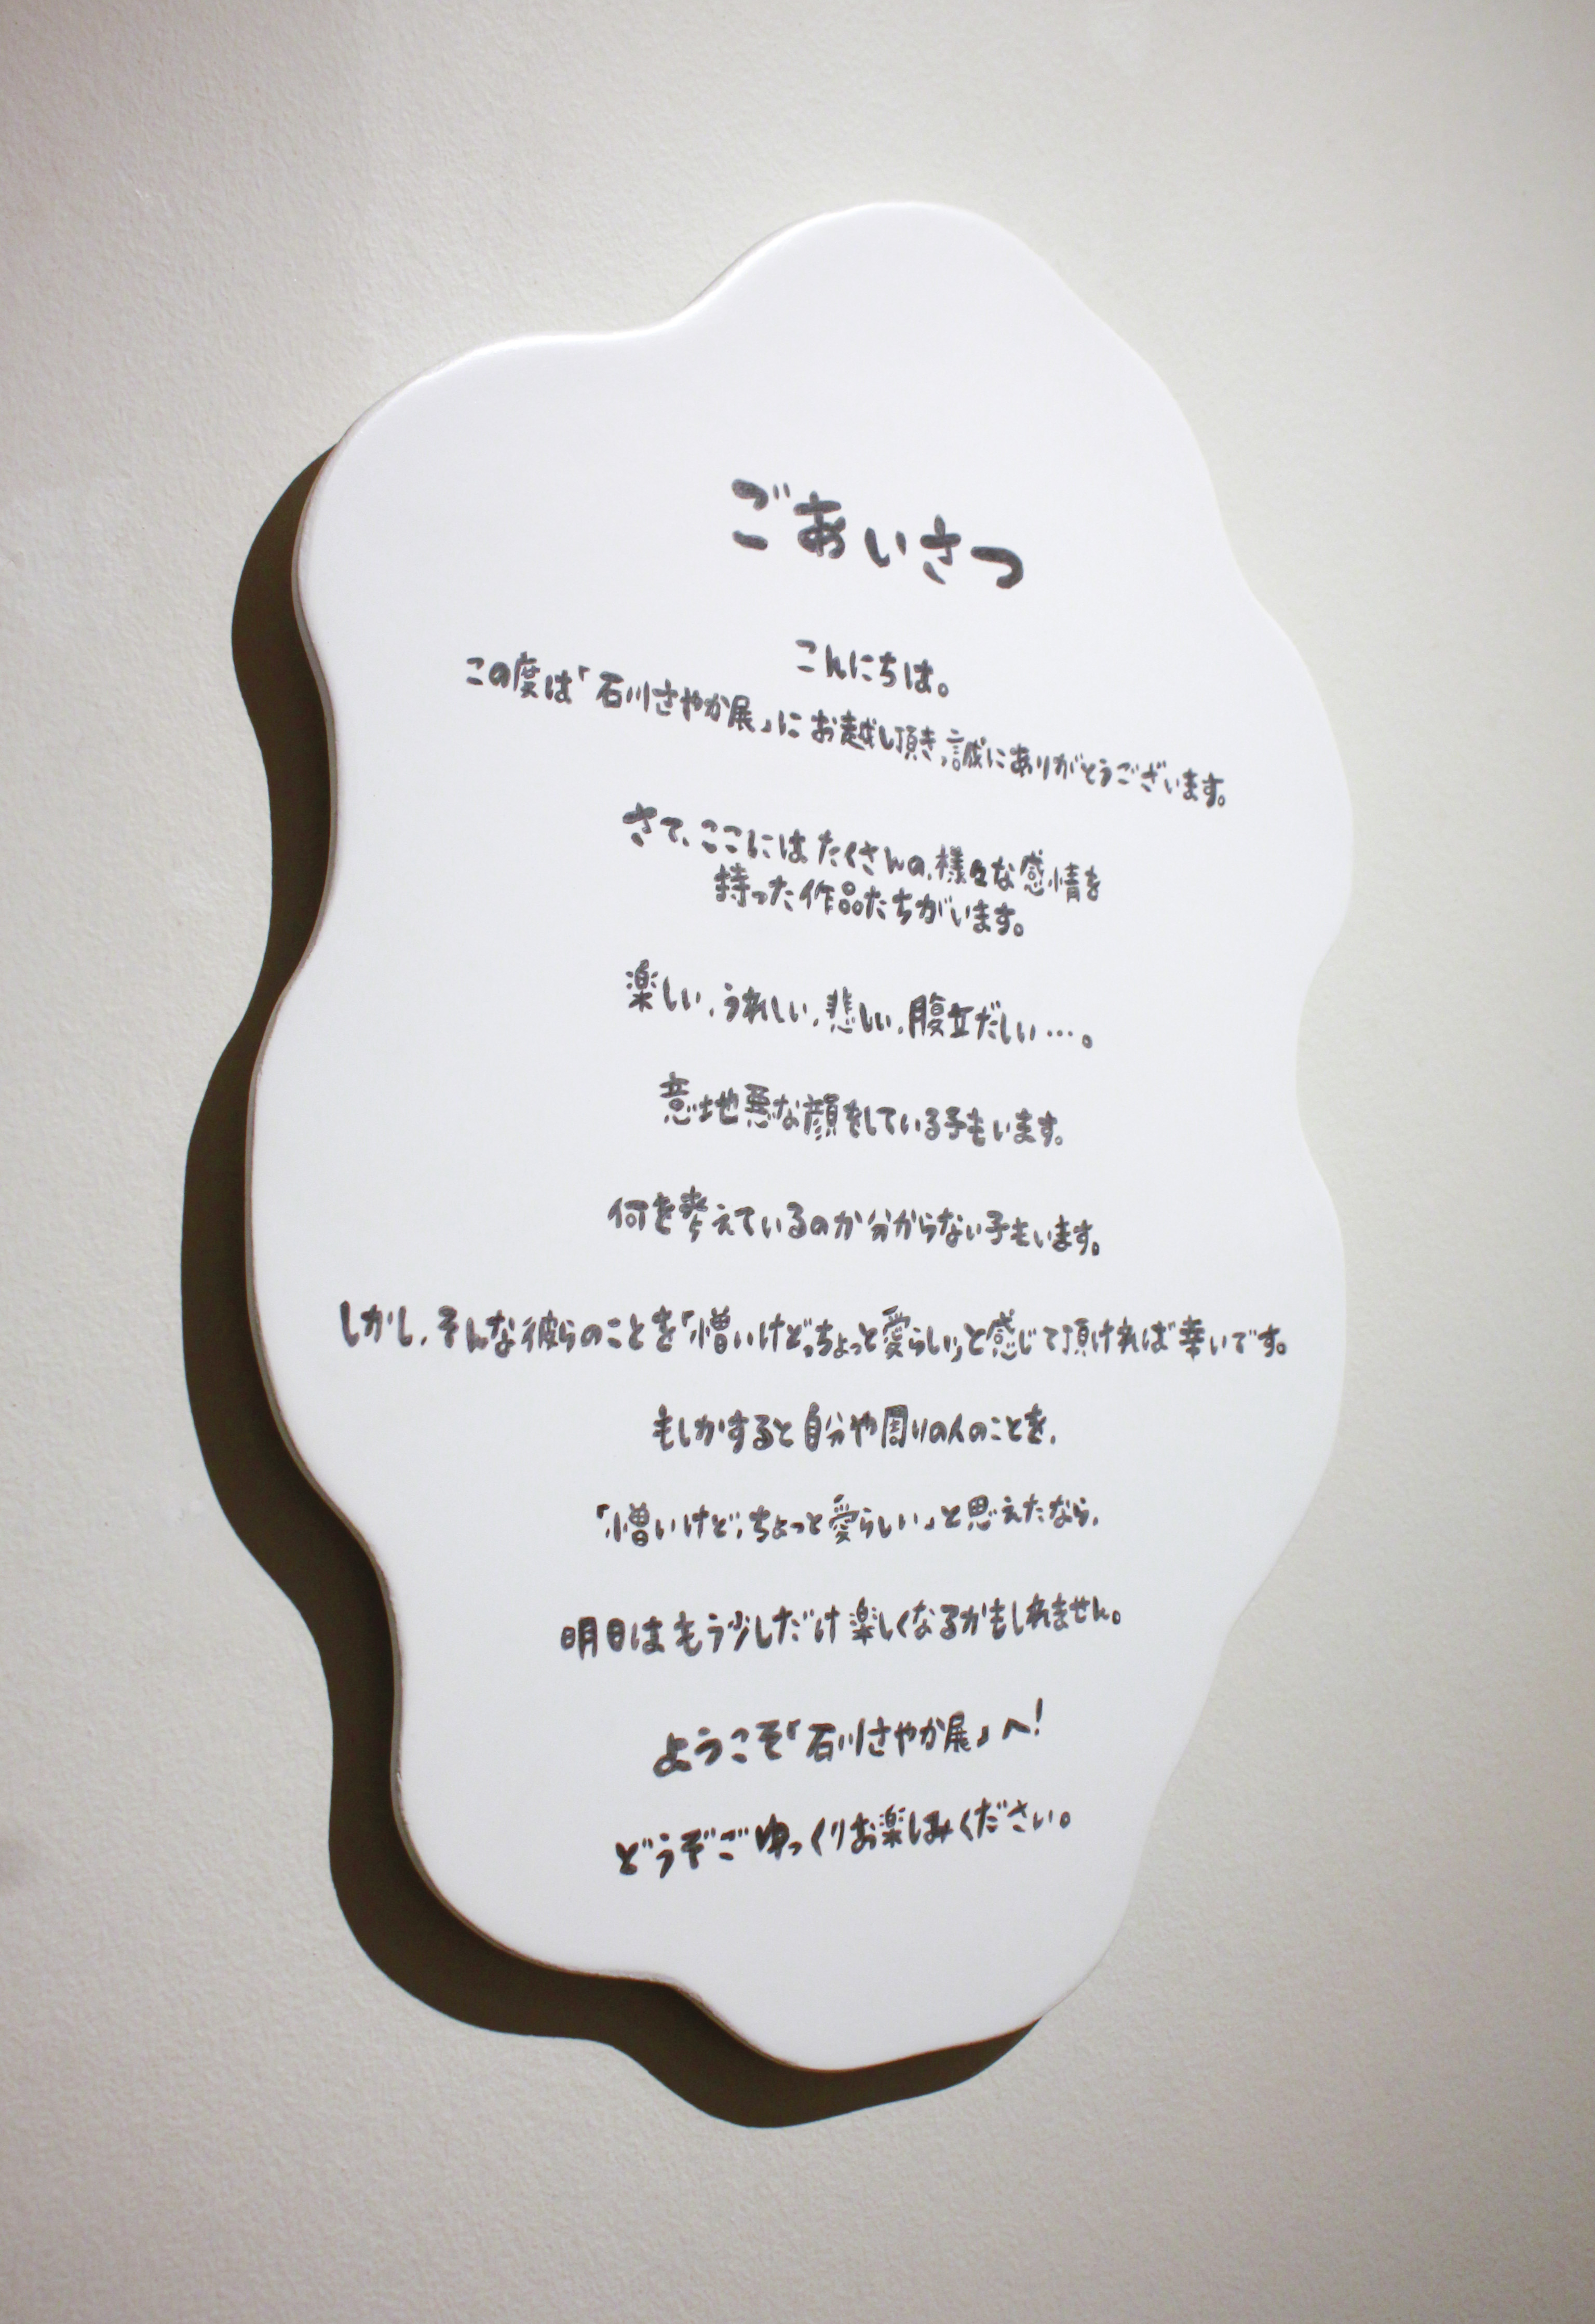 ごあいさつ
こんにちは。
この度は「石川さやか展」にお越し頂き、誠にありがとうございます。
さて、ここにはたくさんの、様々な感情を
持った作品たちがいます。
楽しい、うれしい、悲しい、腹立だしい…。
意地悪な顔をしている子もいます。
何を考えているのか分からない子もいます。
しかし、そんな彼らのことを「憎いけど、ちょっと愛らしい」と感じて頂ければ幸いです。
もしかすると自分や周りの人のことを、
「憎いけど、ちょっと愛らしい」と思えたなら、
明日はもう少しだけ楽しくなるかもしれません。
ようこそ「石川さやか展」へ!
どうぞごゆっくりお楽しみください。